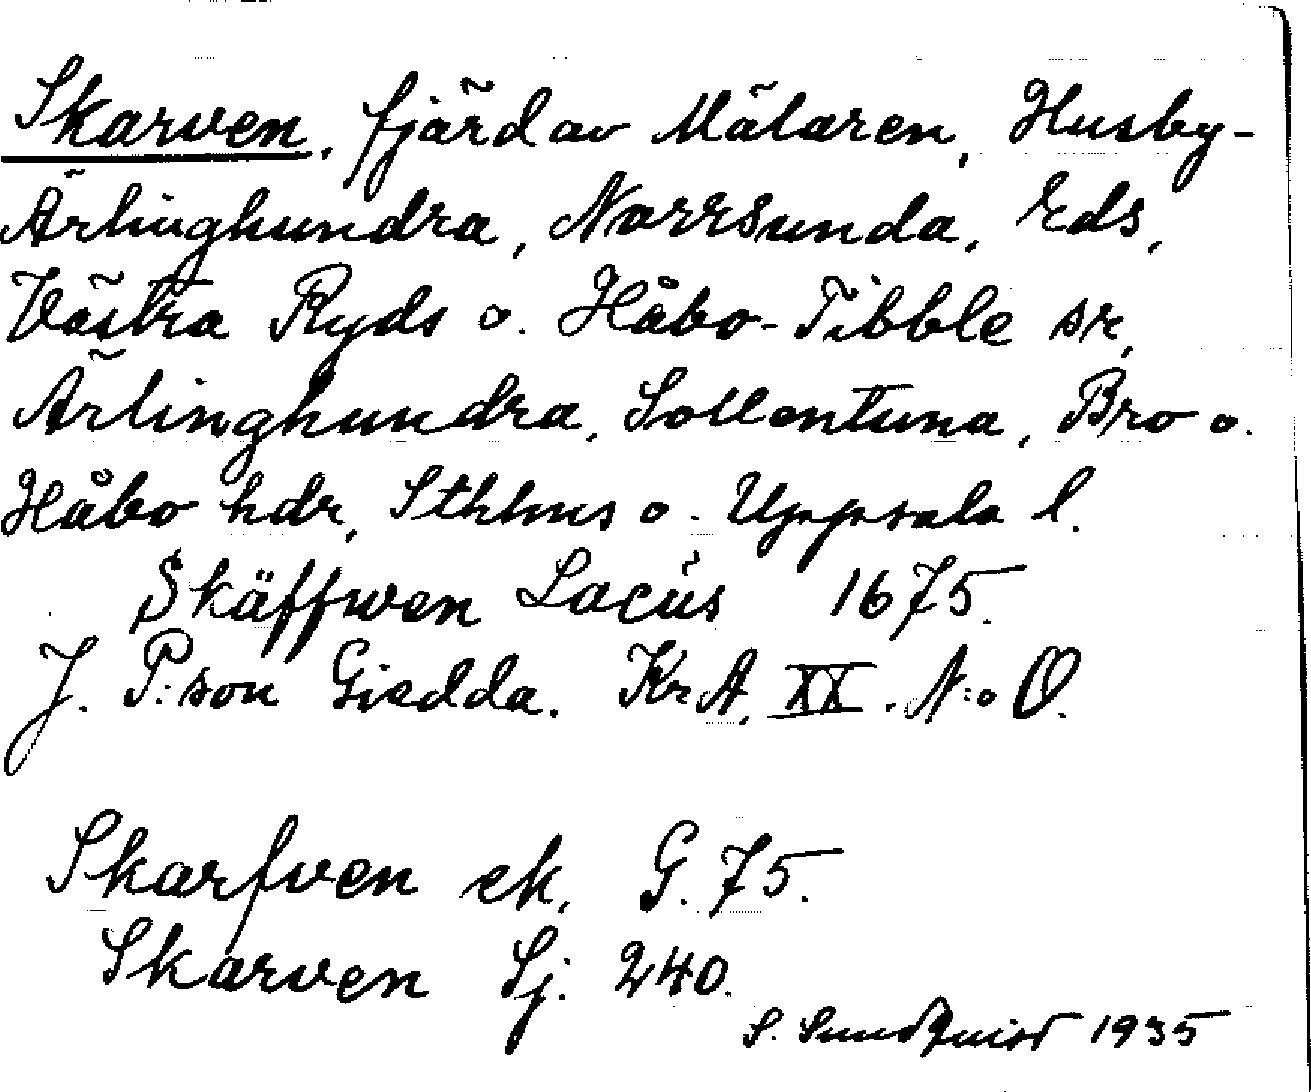 Skarven, fjärd av Mälaren, Husby-
Ärlinghundra, Norrsunda, Eds,
Västra Ryds o. Håbo-Tibble sr,
Ärlinghundra, Sollentuna, Bro o.
Håbo hdr, Sthlms o. Uppsala l.
Skäffwen Lacus 1675.
J. P:son Giedda. KrA, XX. N:o O.
Skarfven ek. G. 75.
Skarven Sj. 240.
S. Sundquist 1935